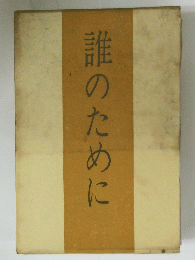 誰のために